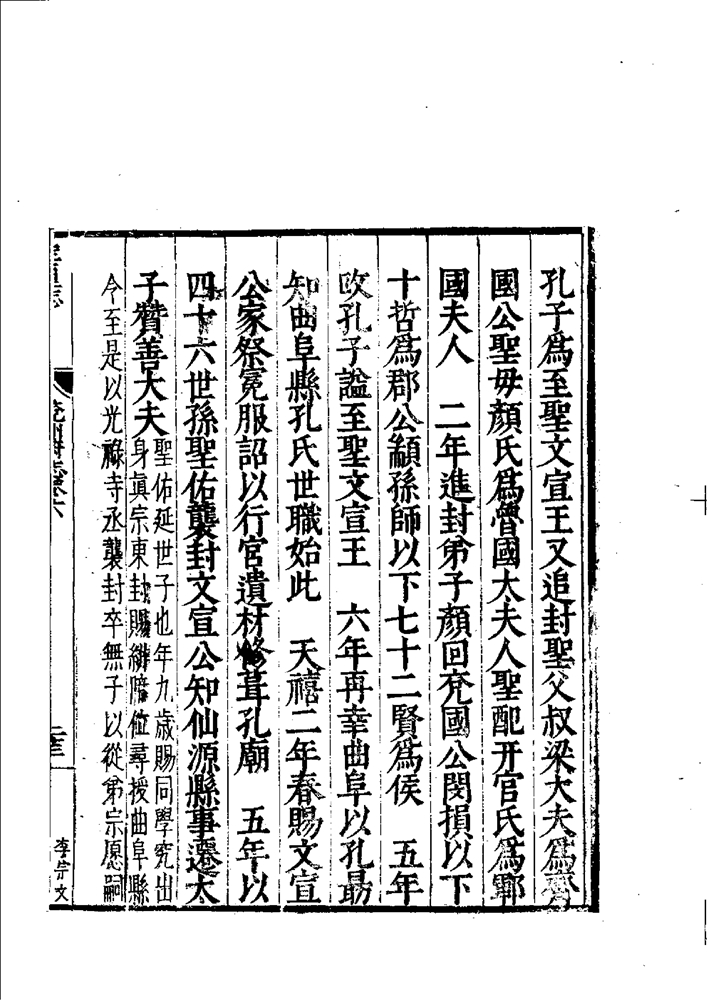 孔子爲至聖文宣王又追封聖父叔梁大夫爲齊
國公聖毋顏氏爲魯國太夫人聖配开官氏爲鄆
國夫人　二年進封弟子顏回兗國公閔損以下
十哲爲郡公顓孫師以下七十二賢爲侯　五年
改孔子謚至聖文宣王　六年再幸曲阜以孔勗
知曲阜縣孔氏世職始此　天禧二年春賜文宣
公家祭冕服詔以行官遺材修葺孔廟　五年以
四十六世孫聖佑襲封文宣公知仙源縣事遷太
子贊善大夫
聖佑延世子也年九歲賜同學究出
身眞宗東封賜緋陪位尋授曲阜縣
今至是以光祿寺丞襲封卒無子以從弟宗愿嗣
兗州府志卷六
李宗文